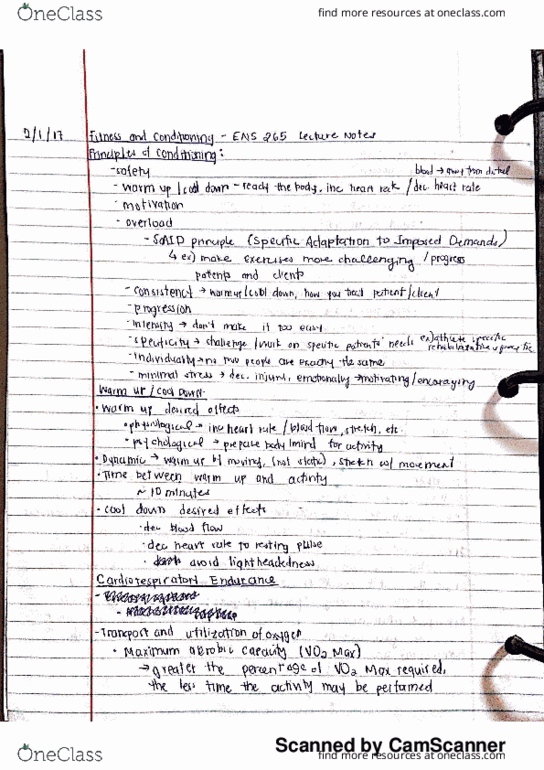 OneClass
find more resources at oneclass.com
2/1/17 Fitness and Conditioning - ENS 265 Lecture Notes
Principles of Conditioning:
- safety
blood → away from
- warm up / cool down - ready the body, inc heart rate / dec. heart rate
- motivation
- overload
- SAID principle (Specific Adaptation to Imposed Demands)
↳ ex) make exercises more challenging / progress
patients and clients
- consistency → warmup/cool down, how you treat patient/client
- progression
- intensity → don't make it too easy
- specificity → challenge / work on specific patients' needs ex) athlete specific
rehabilitative specific
- individuality → no two people are exactly the same
- minimal stress → dec. injury, emotionally → motivating/encouraging
Warm up / cool down:
• warm up desired effects
• physiological → inc heart rate / blood flow, stretch, etc.
• psychological → prepare body/mind for activity
• Dynamic → warm up by moving, (not static), stretch w/ movement
• Time between warm up and activity
~ 10 minutes
• cool down desired effects
• dec blood flow
• dec heart rate to resting pulse
• avoid lightheadedness
Cardiorespiratory Endurance
- Transport and utilization of oxygen
• Maximum aerobic capacity (VO2 Max)
→ greater the percentage of VO2 Max required,
the less time the activity may be performed
Scanned by CamScanner
OneClass
find more resources at oneclass.com